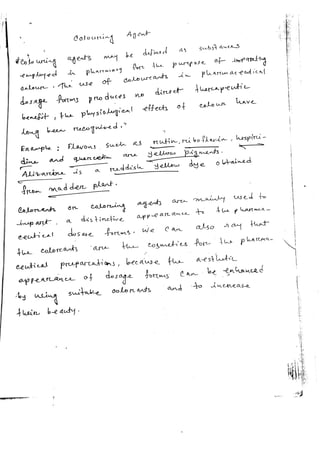 Colouring Agent
"Colouring agents may be defined as substances
employed in pharmacy for the purpose of imparting
colour. The use of colourants in pharmaceutical
dosage forms produces no direct therapeutic
benefit, the physiological effects of colour have
long been recognized."
Example : Flavons such as rutin, riboflavin, hespiri-
dine and quercetin are yellow pigments.
Alizarine is a reddish yellow dye obtained
from madder plant.
Colorants or coloring agents are mainly used to
impart a distinctive appearance to the pharma-
ceutical dosage forms. We can also say that
the colorants are the cosmetics for the pharma-
ceutical preparations, because the aesthetic
appearance of dosage forms can be enhanced
by using suitable colorants and to increase
their beauty.